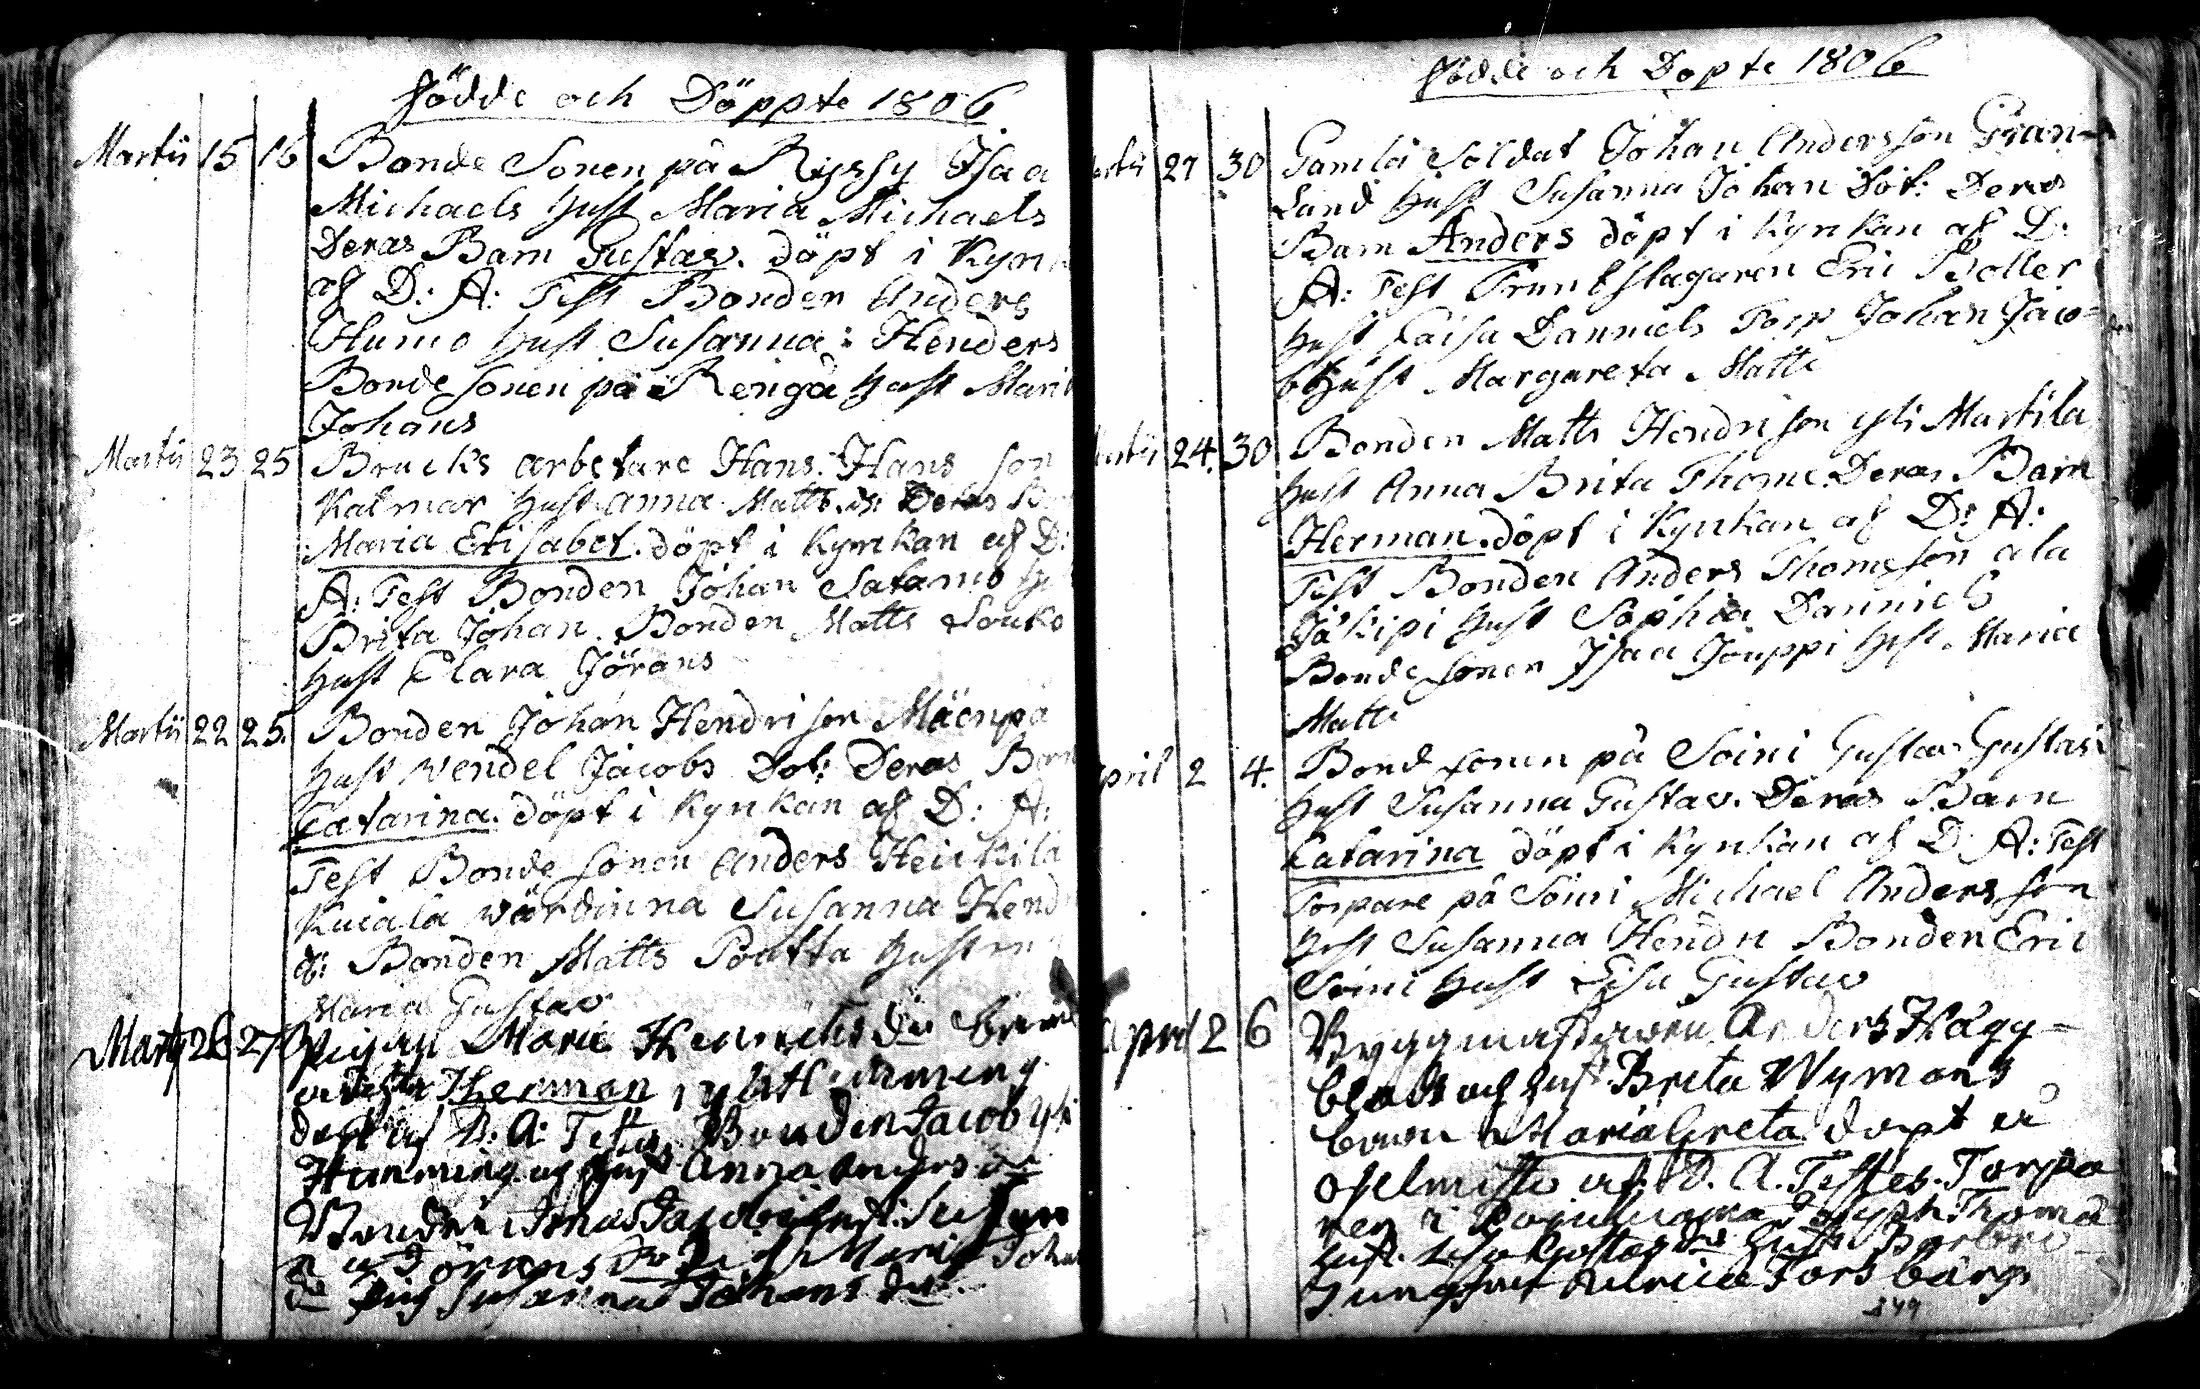 Födde och Döppte 1806
Martii 15 16 Bonde Sonen på Ryssy Isaa
Michaels Hust Maria Michaels
Deras Barn Gustav. döpt i Kyrk
af D: A: Test Bonden Anders
Humo Hust Susanna: Henders
Bonde sonen på Rengå Hust Mari
Johans
Martii 23 25 Brucks arbetare Hans: Hans son
Kalmar Hust Anna Matts. Deras
Maria Elisabet. döpt i Kyrkan af D:
A: Test Bonden Johan Salamo
Brita Johan. Bonden Matts Souko
Hust Clara Jörans
Martii 22 25. Bonden Johan Hendrison Mäenpä
Hust Wendel Jacobs Dot: Deras Barn
Catarina. döpt i Kyrkan af D: A:
Test Bonde sonen Anders Heickilä
Kuiala wärdinna Susanna Hend
d: Bonden Matts Poutta Hustru
Maria Gustav
Marty 26 27 Pigan Maria Henrichs dr
Herman
döpt af D: A: Testes Bonden Jacob yli
Hemming och Hust Anna Anders dr
Bonden Jacobi Hust: Susan
na Jörans dr Maria Joha
dr Pig Susanna Johans dr.
Födde och Döpte 1806
27 30 Gamla Soldat Johan Andersson Gran-
Lund Hust Susanna Johan Dot: Deras
Barn Anders döpt i Kyrkan af D.
A: Test Trumslagaren Eric Boller
Hust Caisa Danniels Torp Johan Jaco-
b Hust Margareta Matts
24. 30 Bonden Matts Hendrison yli Martila
Hust Anna Brita Thome Deras Barn
Herman. döpt i Kyrkan af D: A:
Test Bonden Anders Thomesson ala
Jäkipi Hust Sophia Danniels
Bonde sonen Isaa Jouppi Hust Maria
Matts
April 2 4. Bond sonen på Soini Gustav Gustasi
Hust Susanna Gustav. Deras Barn
Catarina döpt i Kyrkan af D. A: Test
Torpare på Soini Michael Andersson
Hust Susanna Hendri Bonden Eric
Soini Hust Lisa Gustav
April 2 6 Byggmästaren Anders Hägg-
blad och Hust Brita Wymans
barn Maria Greta döpt
af D. A. Testes. Torpa
ren i Joseph Thomas
Hust. Lisa Gustafs dr
Jungfru Ulrica Forsbärg
349